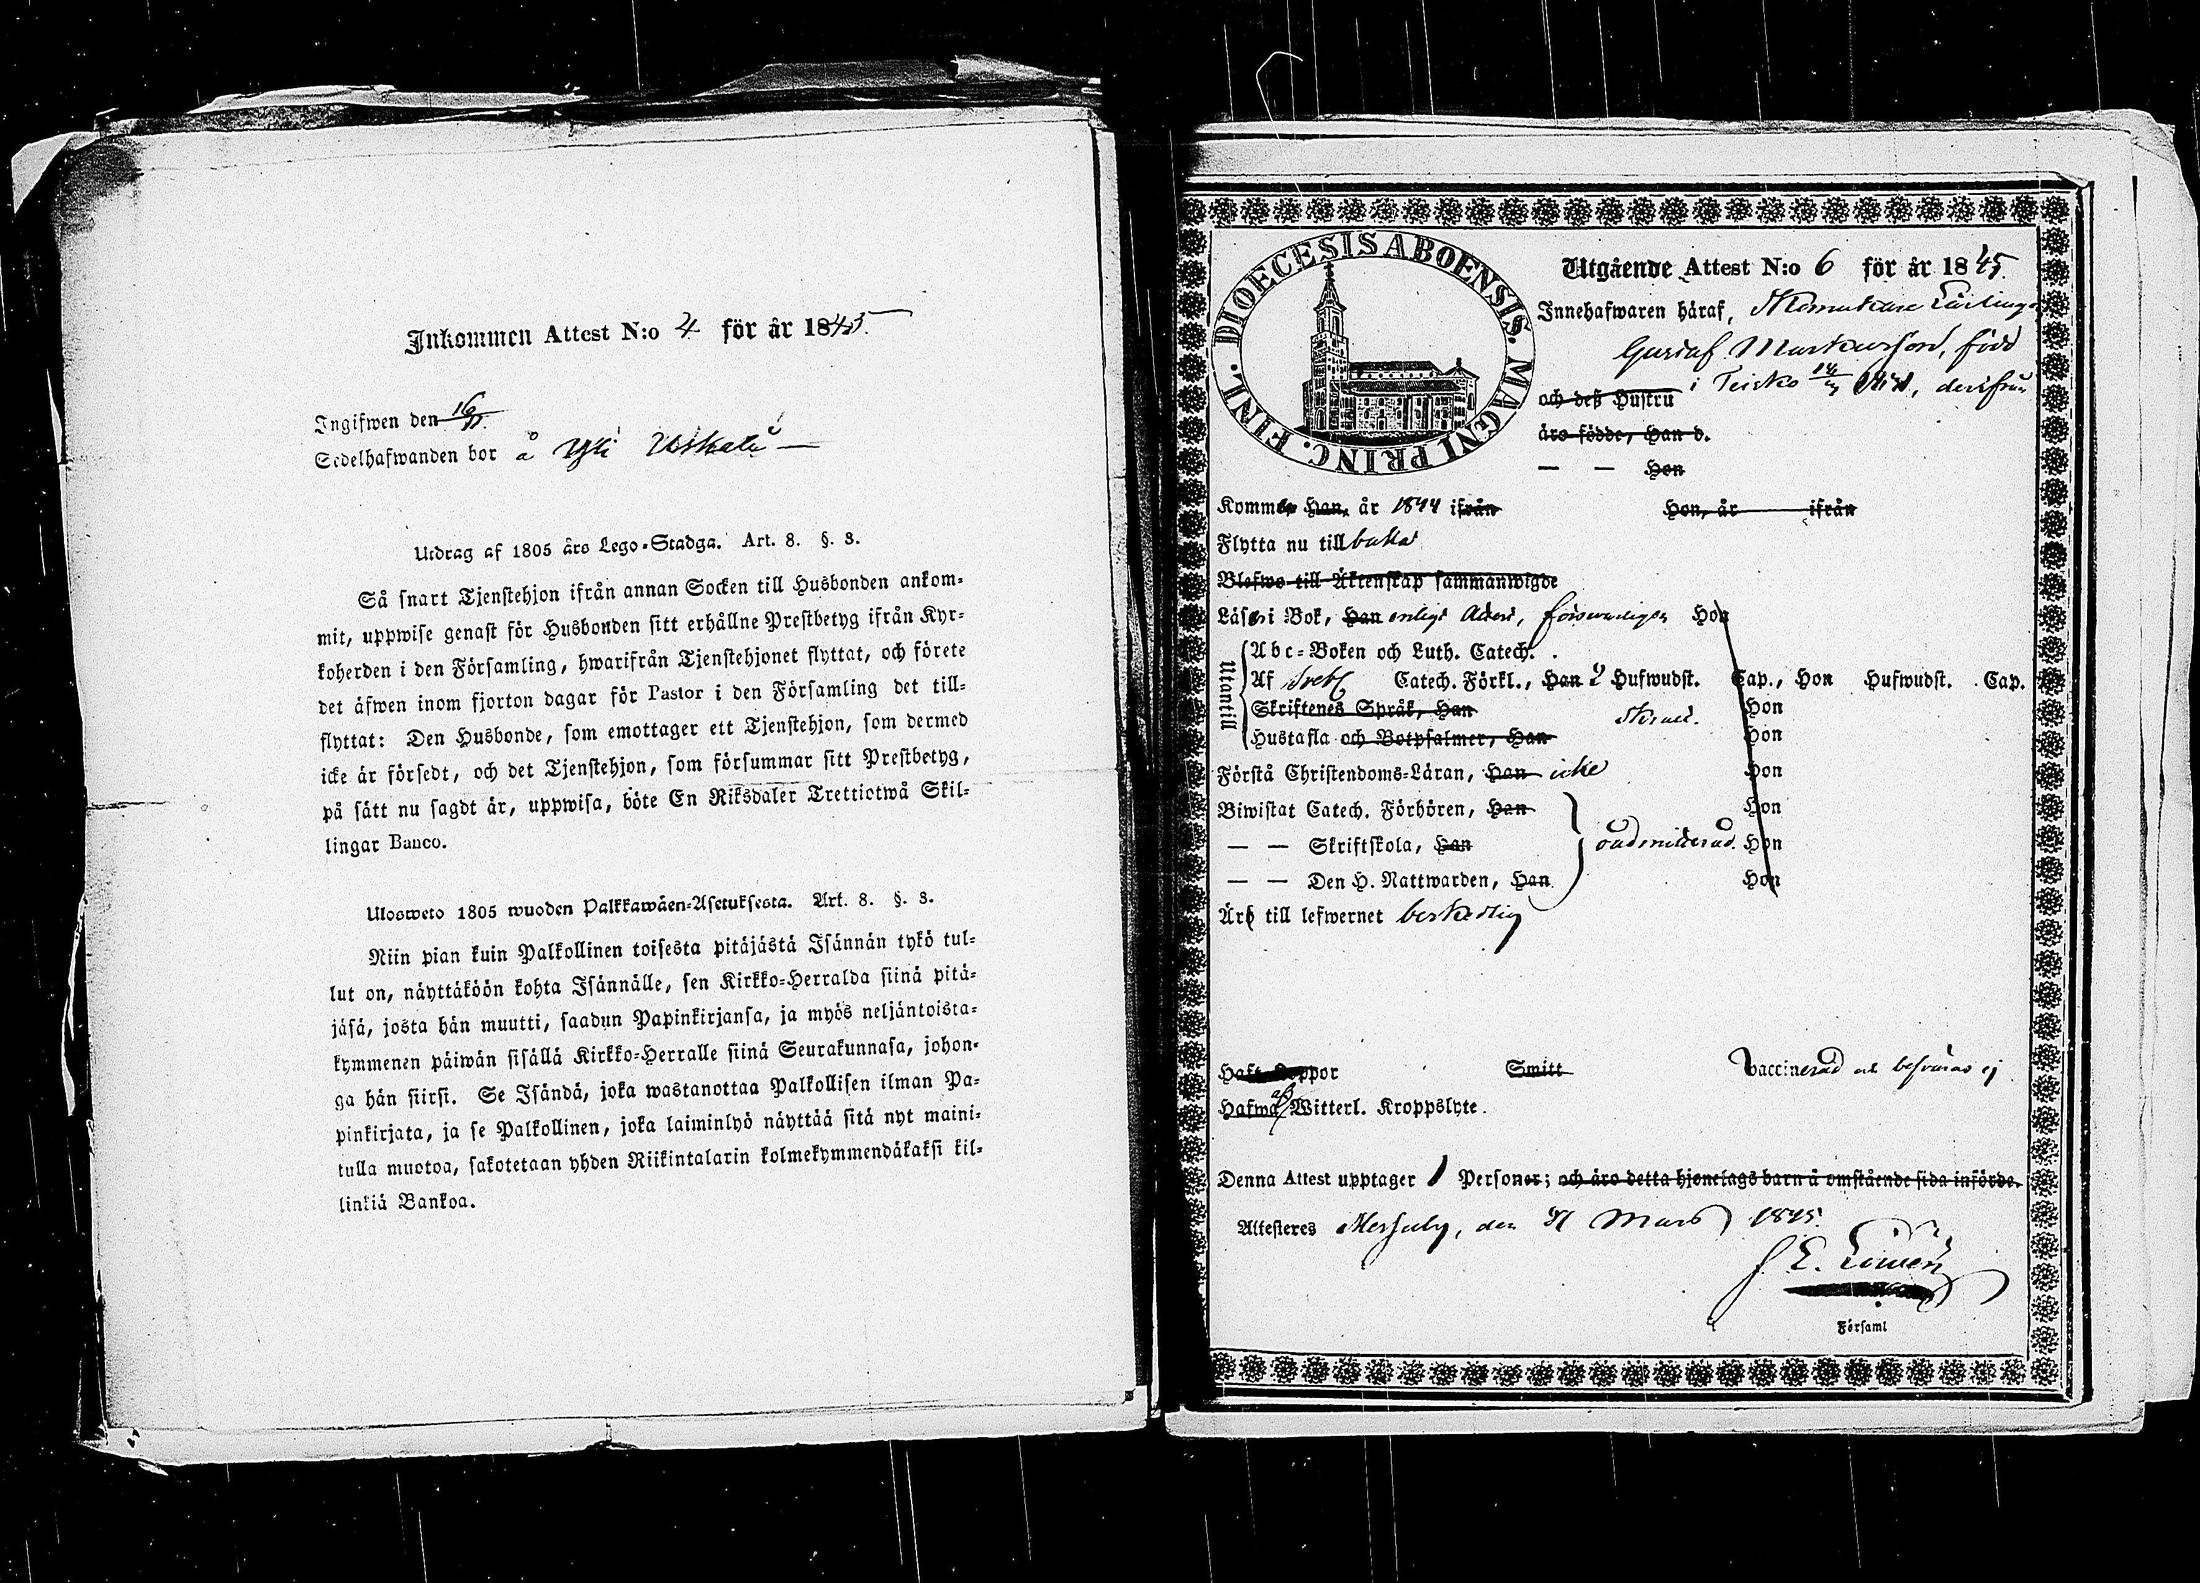 Inkommen Attest N:o 4 för år 1845.
Ingifwen den 16/
Sedelhafwanden bor å Yli Uskali
Utdrag af 1805 års Lego-Stadga. Art. 8. §. 3.
Så snart Tjenstehjon ifrån annan Socken till Husbonden ankom-
mit, uppwise genast för Husbonden sitt erhållne Prestbetyg ifrån Kyr-
koherden i den Församling, hwarifrån Tjenstehjonet flyttat, och förete
det äfwen inom fjorton dagar för Pastor i den Församling det till-
flyttat: Den Husbonde, som emottager ett Tjenstehjon, som dermed
icke är försedt, och det Tjenstehjon, som försummar sitt Prestbetyg,
på sätt nu sagdt är, uppwisa, böte En Riksdaler Trettiotwå Skil-
lingar Banco.
Ulosweto 1805 wuoden Palkkawäen-Asetuksesta. Art. 8. §. 3.
Niin pian kuin Palkollinen toisesta pitäjästä Isännän tykö tul-
lut on, näyttäköön kohta Isännälle, sen Kirkko-Herralda siinä pitä-
jäsä, josta hän muutti, saadun Papinkirjansa, ja myös neljäntoista-
kymmenen päiwän sisällä Kirkko-Herralle siinä Seurakunnasa, johon-
ga hän siirsi. Se Isändä, joka wastanottaa Palkollisen ilman Pa-
pinkirjata, ja se Palkollinen, joka laiminlyö näyttää sitä nyt maini-
tulla muotoa, sakotetaan yhden Riikintalarin kolmekymmendäkaksi kil-
linkiä Bankoa.
DIOECESIS ABOENSIS. MAGNI PRINC. FINL.
Utgående Attest N:o 6 för år 1845.
Innehafwaren häraf, Skomakare Lärlingen
Gustaf Markusson, född
och deß Hustru i Teisko derifrån
äro födde, Han d.
— — Hon
Kommen Han, år 1844 ifrån Hon, år ifrån
Flytta nu tillbaka
Blefwo till Äktenskap sammanwigde
Läser i Bok, Han enligt förswarligen Hon
Utantill
Abc-Boken och Luth. Catech.
Af Catech. Förkl., Han Hufwudst. Cap., Hon Hufwudst. Cap.
Skriftenes Språk, Han Hon
Hustafla och Botpsalmer, Han Hon
Förstå Christendoms-Läran, Han icke Hon
Biwistat Catech. Förhören, Han Hon
— — Skriftskola, Han oadmitterad. Hon
— — Den H. Nattwarden, Han Hon
Äro till lefwernet beskedlig
Haft Koppor Smitt Vaccinerad och besväras ej
Hafwa af Witterl. Kroppslyte.
Denna Attest upptager 1 Personer; och äro detta hjonelags barn å omstående sida införde.
Attesteres Messuby, den 31 Mars 1845.
J. E. Lowén
Församl